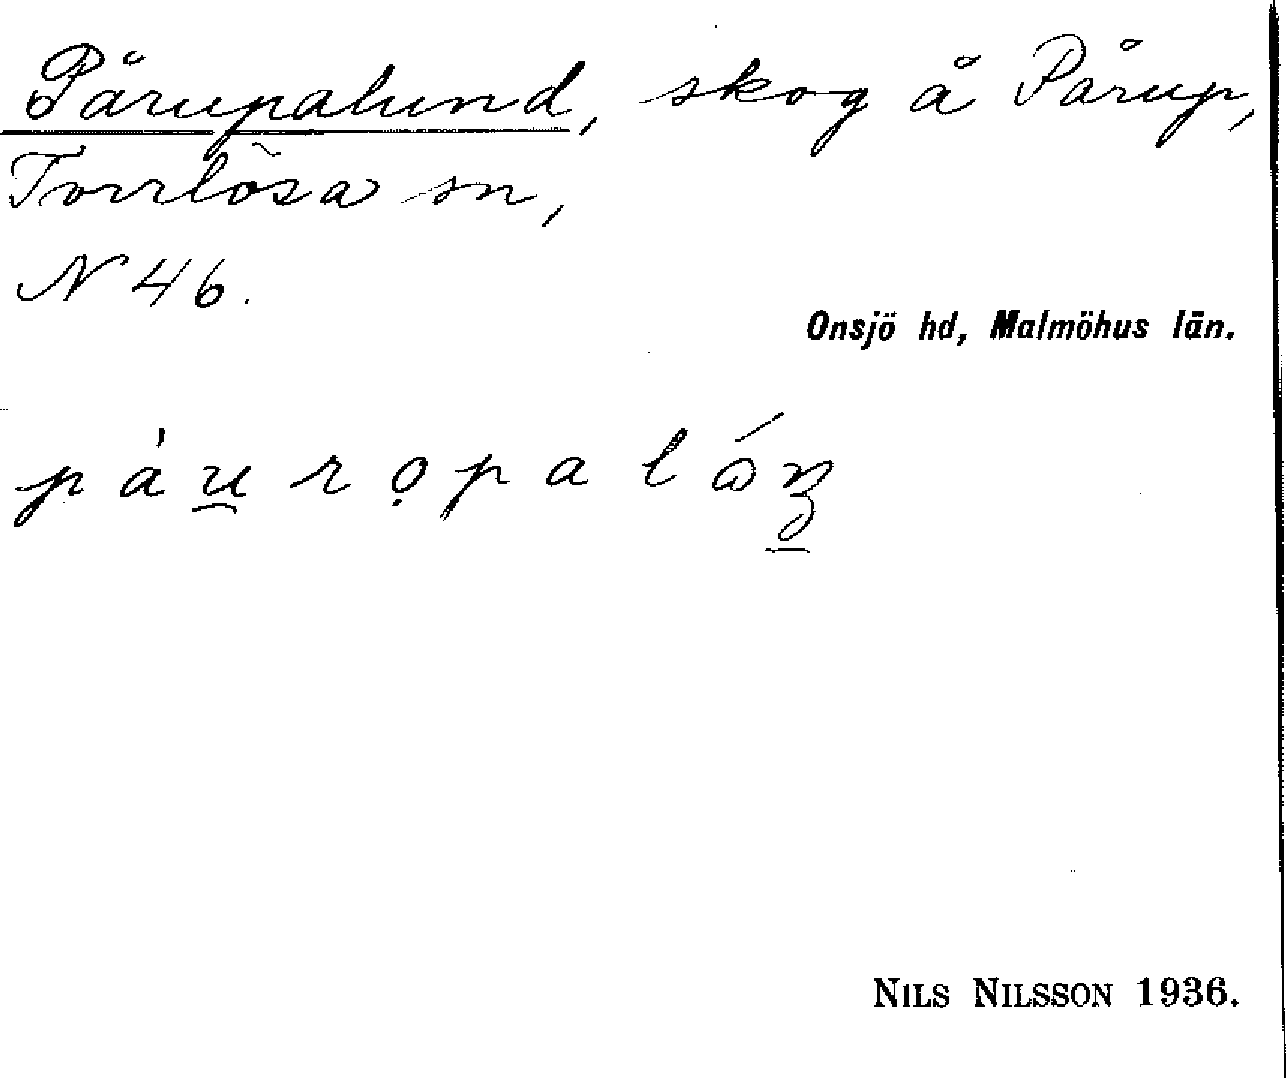 Pårupalund, skog å Pårup,
Torrlösa sn,
N 46.
Onsjö hd, Malmöhus län.
NILS NILSSON 1936.